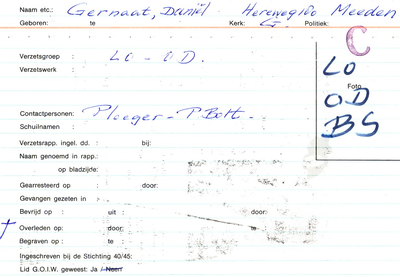 Naam etc.: Gernaat, Daniël Hereweg 180 Meeden
Geboren: te Kerk: G. Politiek:
C
Verzetsgroep : LO - OD.
LO
Verzetswerk :
Foto
OD
BS
Contactpersonen: Ploeger - P Bolt.
Schuilnamen :
Verzetsrapp. ingel. dd. : bij:
Naam genoemd in rapp.:
op bladzijde:
Gearresteerd op : door:
Gevangen gezeten in :
Bevrijd op : uit : door:
† Overleden op: door: te
Begraven op : te
Ingeschreven bij de Stichting 40/45:
Lid G.O.I.W. geweest: Ja / Neen